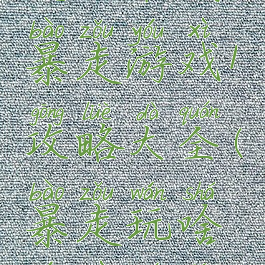 bào zǒu yóu xì
暴走游戏1
gōng lüè dà quán
攻略大全(
bào zǒu wán shá
暴走玩啥